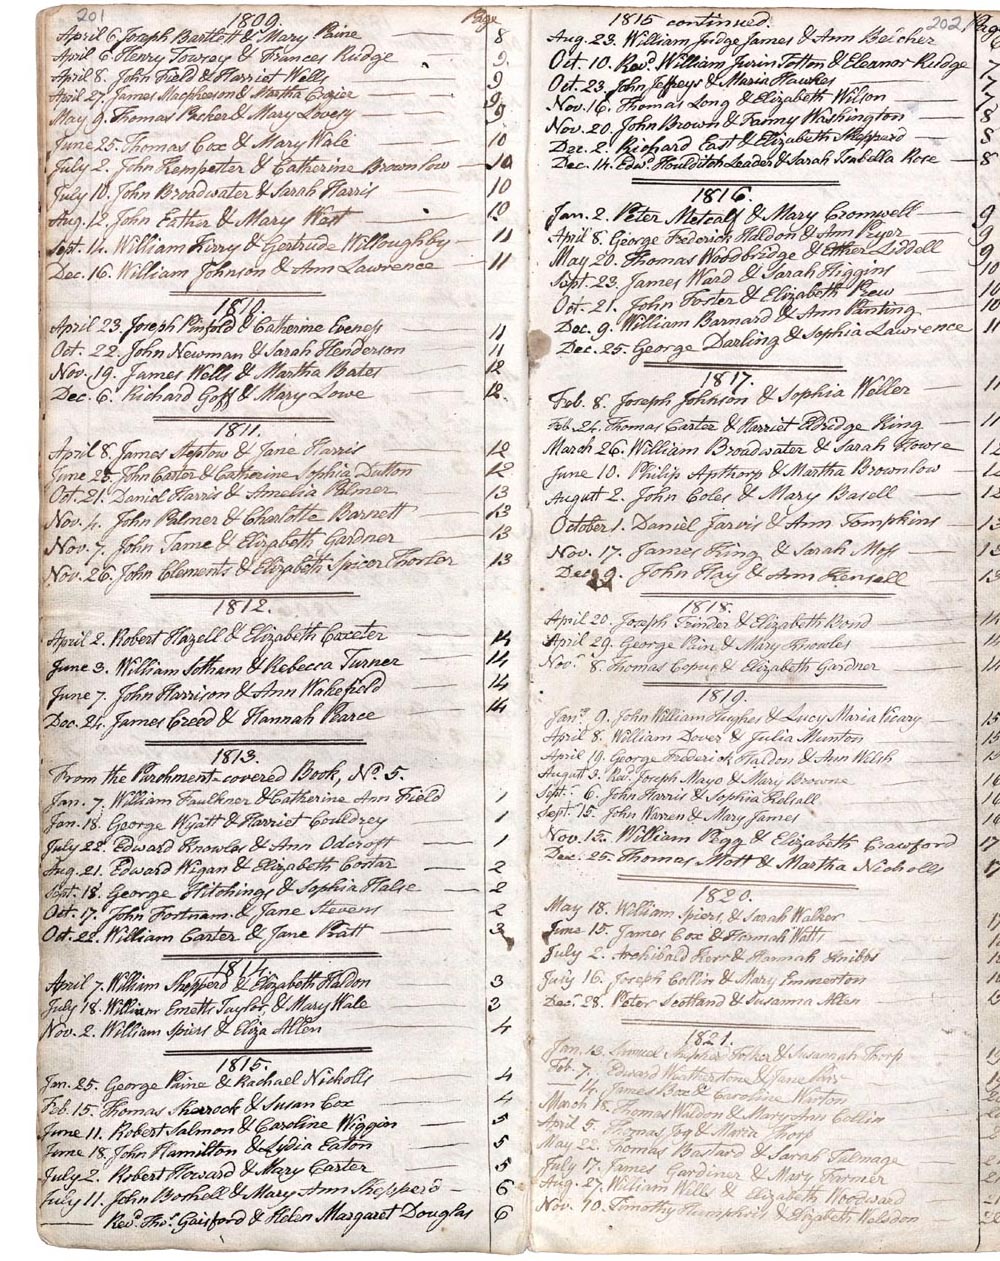 201
1809. Page
April 6. Joseph Bartlett & Mary Paine 8
April 6. Henry Towsey & Frances Rudge 9
April 8. John Field & Harriet Wells 9
April 27. James Macpherson & Martha Crozier 9
May 9. Thomas Packer & Mary Lovesy 9
June 25. Thomas Cox & Mary Wale 10
July 2. John Kempster & Catherine Brownlow 10
July 10. John Broadwater & Sarah Harris 10
Aug. 12. John Esther & Mary Watt 10
Sept. 14. William Hurry & Gertrude Willoughby 11
Dec. 16. William Johnson & Ann Lawrence 11
1810.
April 23. Joseph Pinfold & Catherine Eveness 11
Oct. 22. John Newman & Sarah Henderson 11
Nov. 19. James Wells & Martha Bates 12
Dec. 6. Richard Goff & Mary Lowe 12.
1811.
April 8. James Steptow & Jane Harris 12
June 25. John Carter & Catherine Sophia Dutton 12
Oct. 21. Daniel Harris & Amelia Palmer 13
Nov. 4. John Palmer & Charlotte Barnett 13
Nov. 7. John Tame & Elizabeth Gardner 13
Nov. 26. John Clements & Elizabeth Spicer Thorter 13
1812.
April 2. Robert Hazell & Elizabeth Exceter 14
June 3. William Sotham & Rebecca Turner 14
June 7. John Harrison & Ann Wakefield 14
Dec. 24. James Creed & Hannah Pearce 14
1813.
From the Parchment-covered Book, No. 5.
Jan. 7. William Faulkner & Catherine Ann Field 1
Jan. 18. George Wyatt & Harriet Couldrey 1
July 22. Edward Knowles & Ann Odcroft 1
Aug. 21. Edward Wigan & Elizabeth 2
Sept. 18. George Hitchings & Sophia Halse 2
Oct. 17. John Fortnam & Jane Stevens 2
Oct. 22. William Carter & Jane Pratt 3
1814.
April 7. William Shepperd & Elizabeth Haldon 3
July 18. William Emetts Taylor & Mary Wale 3
Nov. 2. William Spiers & Eliza Allen 4
1815.
Jan. 25. George Paine & Rachael Nicholls 4
Feb. 15. Thomas Sharrock & Susan Cox 4
June 11. Robert Salmon & Caroline Wiggin 5
June 18. John Hamilton & Lydia Eaton 5
July 2. Robert Howard & Mary Carter 5
July 11. John Bothell & Mary Ann Shepperd 6
Revd. Thos. Gaisford & Helen Margaret Douglas 6
202
1815 continued.
Aug. 23. William Judge James & Ann Belcher
Oct. 10. Revd. William Jurin Totton & Eleanor Rudge 7
Oct. 23. John Jeffreys & Maria Hawkes 7
Nov. 16. Thomas Long & Elizabeth Wilson 7
Nov. 20. John Brown & Fanny Washington 8
Dec. 2. Richard East & Elizabeth Shepperd 8
Dec. 14. Edwd. Houlditch Leader & Sarah Isabella Rose 8
1816.
Jan. 2. Peter Metcalf & Mary Cromwell 9
April 8. George Frederick Haldon & Ann Pryor 9
May 20. Thomas Woodbridge & Esther Liddell 9
Sept. 23. James Ward & Sarah Higgins 10
Oct. 21. John Foster & Elizabeth Prew 10
Dec. 9. William Barnard & Ann Panting 10
Dec. 25. George Darling & Sophia Lawrence 11
1817.
Feb. 8. Joseph Johnson & Sophia Weller 11
Feb. 24. Thomas Carter & Harriet Eldridge King 11
March 26. William Broadwater & Sarah Howse 12
June 10. Philip Apthorp & Martha Brownlow 12
August 2. John Coles & Mary Basell 12
October 1. Daniel Jarvis & Ann Tompkins 13
Nov. 17. James King & Sarah Moss 13
Dec. 9. John Hay & Ann Hensell 13
1818.
April 20. Joseph Trinder & Elizabeth Bond 14
April 29. George Pain & Mary Knowles 14
Nov. 8. Thomas Copus & Elizabeth Gardner 14
1819.
Jany. 9. John William Hughes & Lucy Maria Vicary 15
April 8. William Dover & Julia Munton 15
April 19. George Frederick Haldon & Ann Welsh 15
August 3. Revd. Joseph Mayo & Mary Browne 16
Sept. 6. John Harris & Sophia Kelsall 16
Sept. 15. John Warren & Mary James 16
Nov. 15. William Pegg & Elizabeth Crawford 17
Dec. 25. Thomas Mott & Martha Nicholls 17
1820.
May 18. William Spiers & Sarah Walker
June 15. James Cox & Hannah Watts
July 2. Archibald Kerr & Hannah Knibbs
July 16. Joseph Collin & Mary Emmerton
Dec. 28. Peter Scotland & Susanna Allen
1821.
Jan. 13. Samuel Folker & Susannah Thorp
Feb. 7. Edward Weatherstone & Jane
14. James Box & Caroline Warton
March 18. Thomas Waldon & Mary Ann Collin
April 5. Thomas Joy & Maria Thorp
May 22. Thomas Bastard & Sarah Talmage
July 17. James Gardiner & Mary Farmer
Aug. 27. William Wells & Elizabeth Woodward
Nov. 10. Timothy Humphries & Elizabeth Welsdon